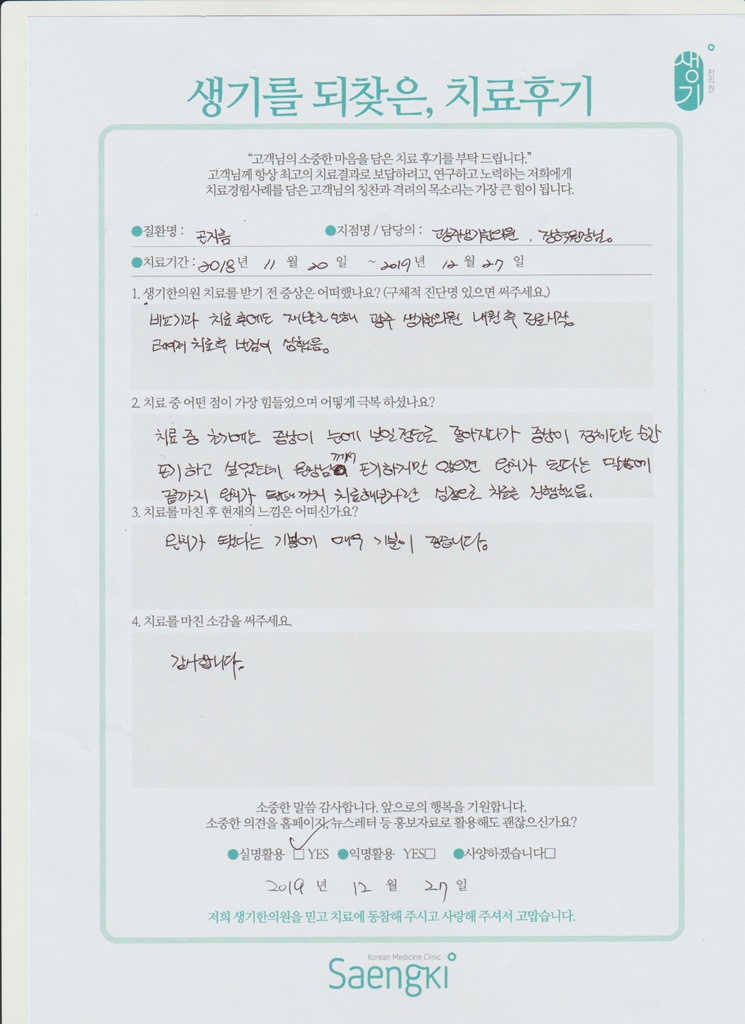 생기를 되찾은, 치료후기
생기
한의원
"고객님의 소중한 마음을 담은 치료 후기를 부탁 드립니다."
고객님께 항상 최고의 치료결과로 보답하려고, 연구하고 노력하는 저희에게
치료경험사례를 담은 고객님의 칭찬과 격려의 목소리는 가장 큰 힘이 됩니다.
질환명 : 곤지름 지점명 / 담당의 : 광주생기한의원,
치료기간 : 2018년 11월 20일 ~ 2019년 12월 27일
1. 생기한의원 치료를 받기 전 증상은 어떠했나요? (구체적 진단명 있으면 써주세요.)
비뇨기과 치료 후에도 재발로 인해 광주 생기한의원 내원 후 진료시작.
치료후 심했음.
2. 치료 중 어떤 점이 가장 힘들었으며 어떻게 극복 하셨나요?
치료 중 초기에는 증상이 눈에 보일정도로 좋아지다가 증상이 정체되는 순간
포기하고 싶었는데 원장님께서 포기하지만 않으면 완치가 된다는 말씀에
끝까지 완치가 될때까지 치료해보자란 심정으로 치료를 진행했음.
3. 치료를 마친 후 현재의 느낌은 어떠신가요?
완치가 됐다는 기쁨에 매우 기분이 좋습니다.
4. 치료를 마친 소감을 써주세요.
감사합니다.
소중한 말씀 감사합니다. 앞으로의 행복을 기원합니다.
소중한 의견을 홈페이지, 뉴스레터 등 홍보자료로 활용해도 괜찮으신가요?
실명활용 YES 익명활용 YES 사양하겠습니다
2019년 12월 27일
저희 생기한의원을 믿고 치료에 동참해 주시고 사랑해 주셔서 고맙습니다.
Korean Medicine Clinic
Saengki